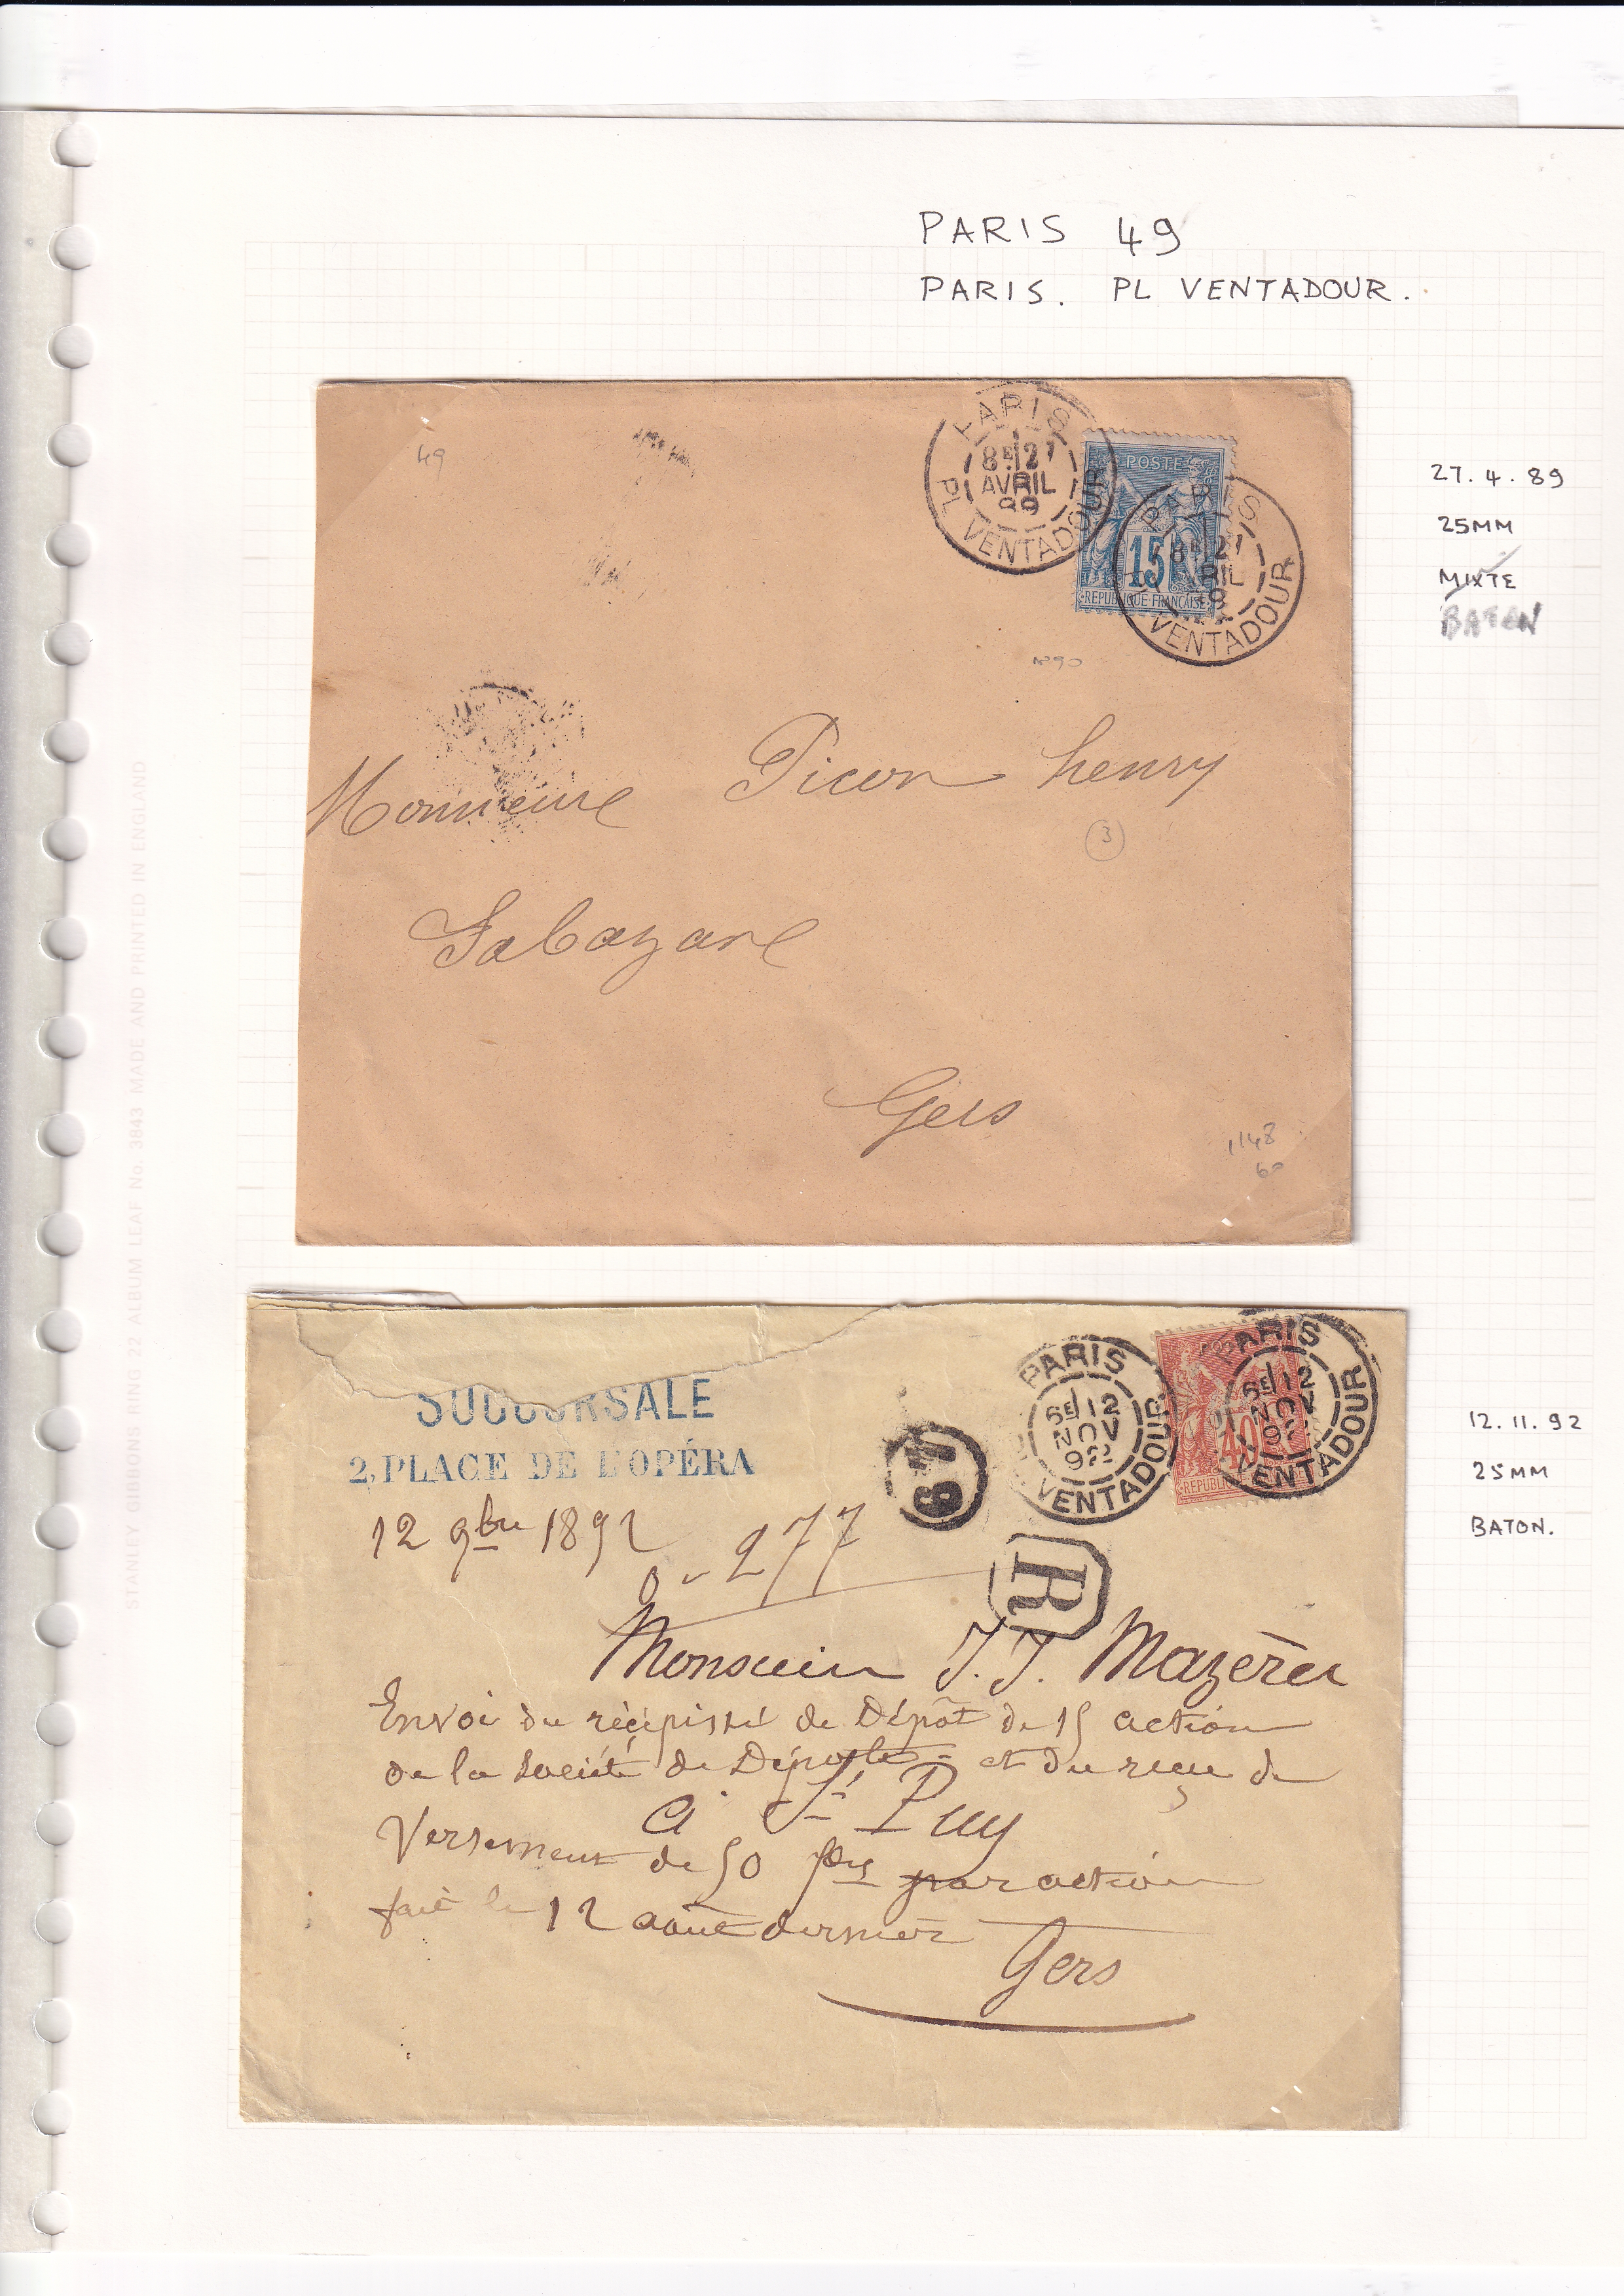 PARIS 49
PARIS. PL VENTADOUR.
49
PARIS
8E 27
AVRIL
89
PL VENTADOUR
POSTES
15
REPUBLIQUE FRANCAISE
PARIS
8E 27
VENTADOUR
27.4.89
25MM
MIXTE
BATON
1890
Monsieur Picon henry
3
Gers
1148
60
STANLEY GIBBONS RING 22 ALBUM LEAF No. 3843 MADE AND PRINTED IN ENGLAND
SUCCURSALE
2, PLACE DE L'OPÉRA
12 9bre 1892
277
49
PARIS
6E 12
NOV
92
VENTADOUR
40
REPUBLIQU
PARIS
6E 12
NOV
92
VENTADOUR
R
12.11.92
25MM
BATON.
Monsieur J. J. Mazères
Envoi du récépissé de Dépôt de 15 action
de la Société de Dépots et du reçu de
à St Puy
Versement de 50 frs par action
fait le 12 août dernier
Gers